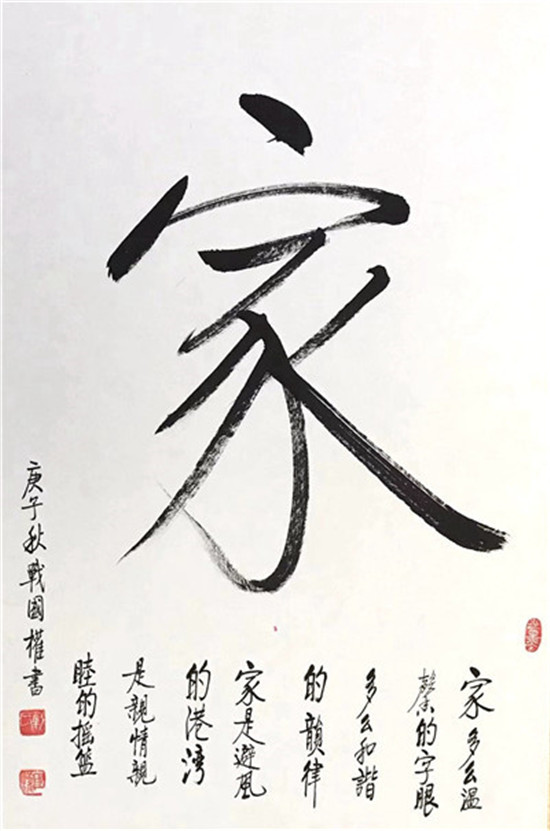 家
家多么温
馨的字眼
多么和諧
的韻律
家是避风
的港湾
是親情親
睦的摇篮
庚子秋戰國權書